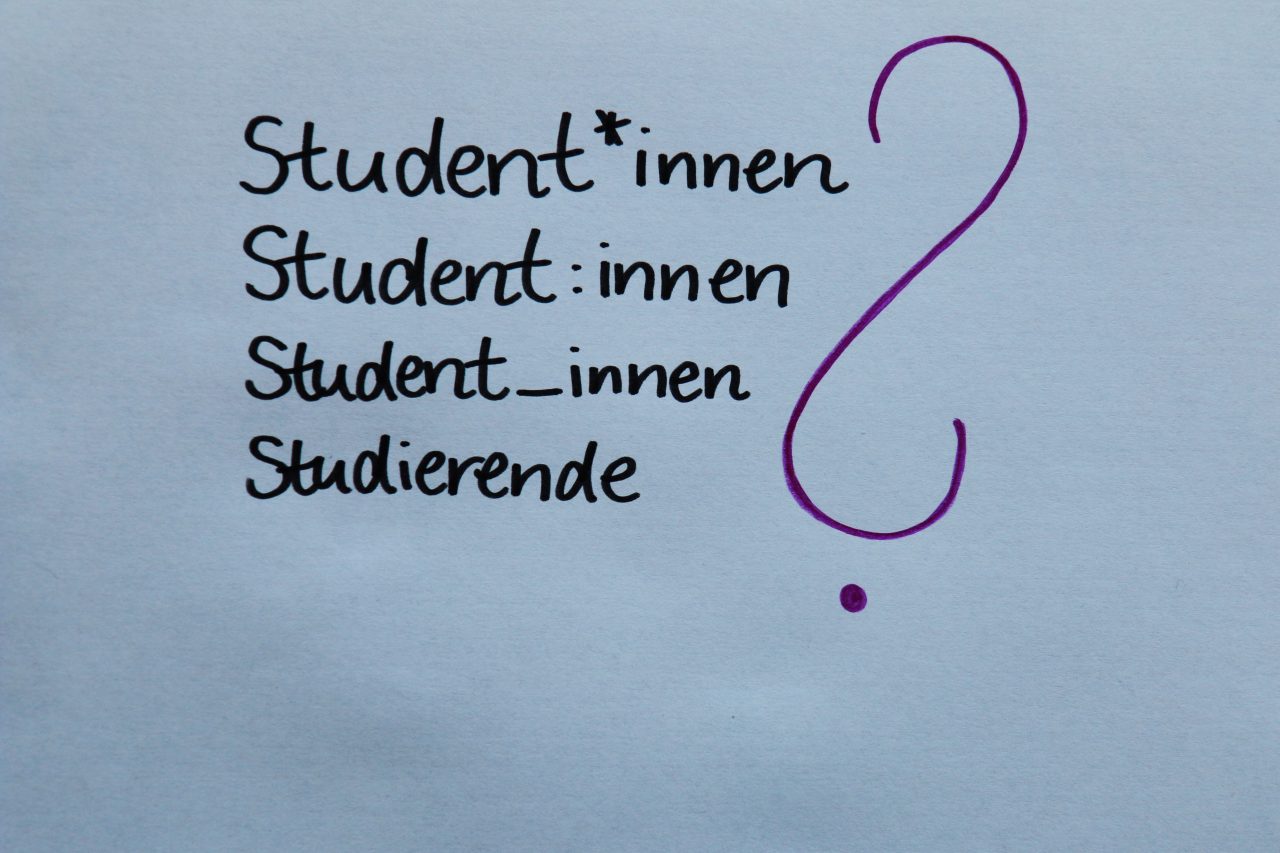 Student*innen
Student:innen
Student_innen
Studierende
?